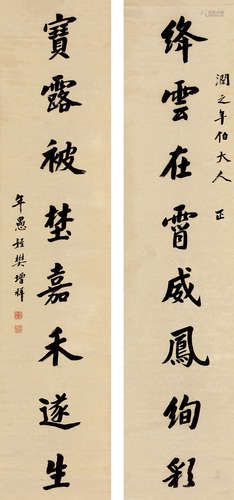 潤之年伯大人 正
絳雲在霄威鳳絢彩
寶露被埜嘉禾遂生
年愚姪樊增祥